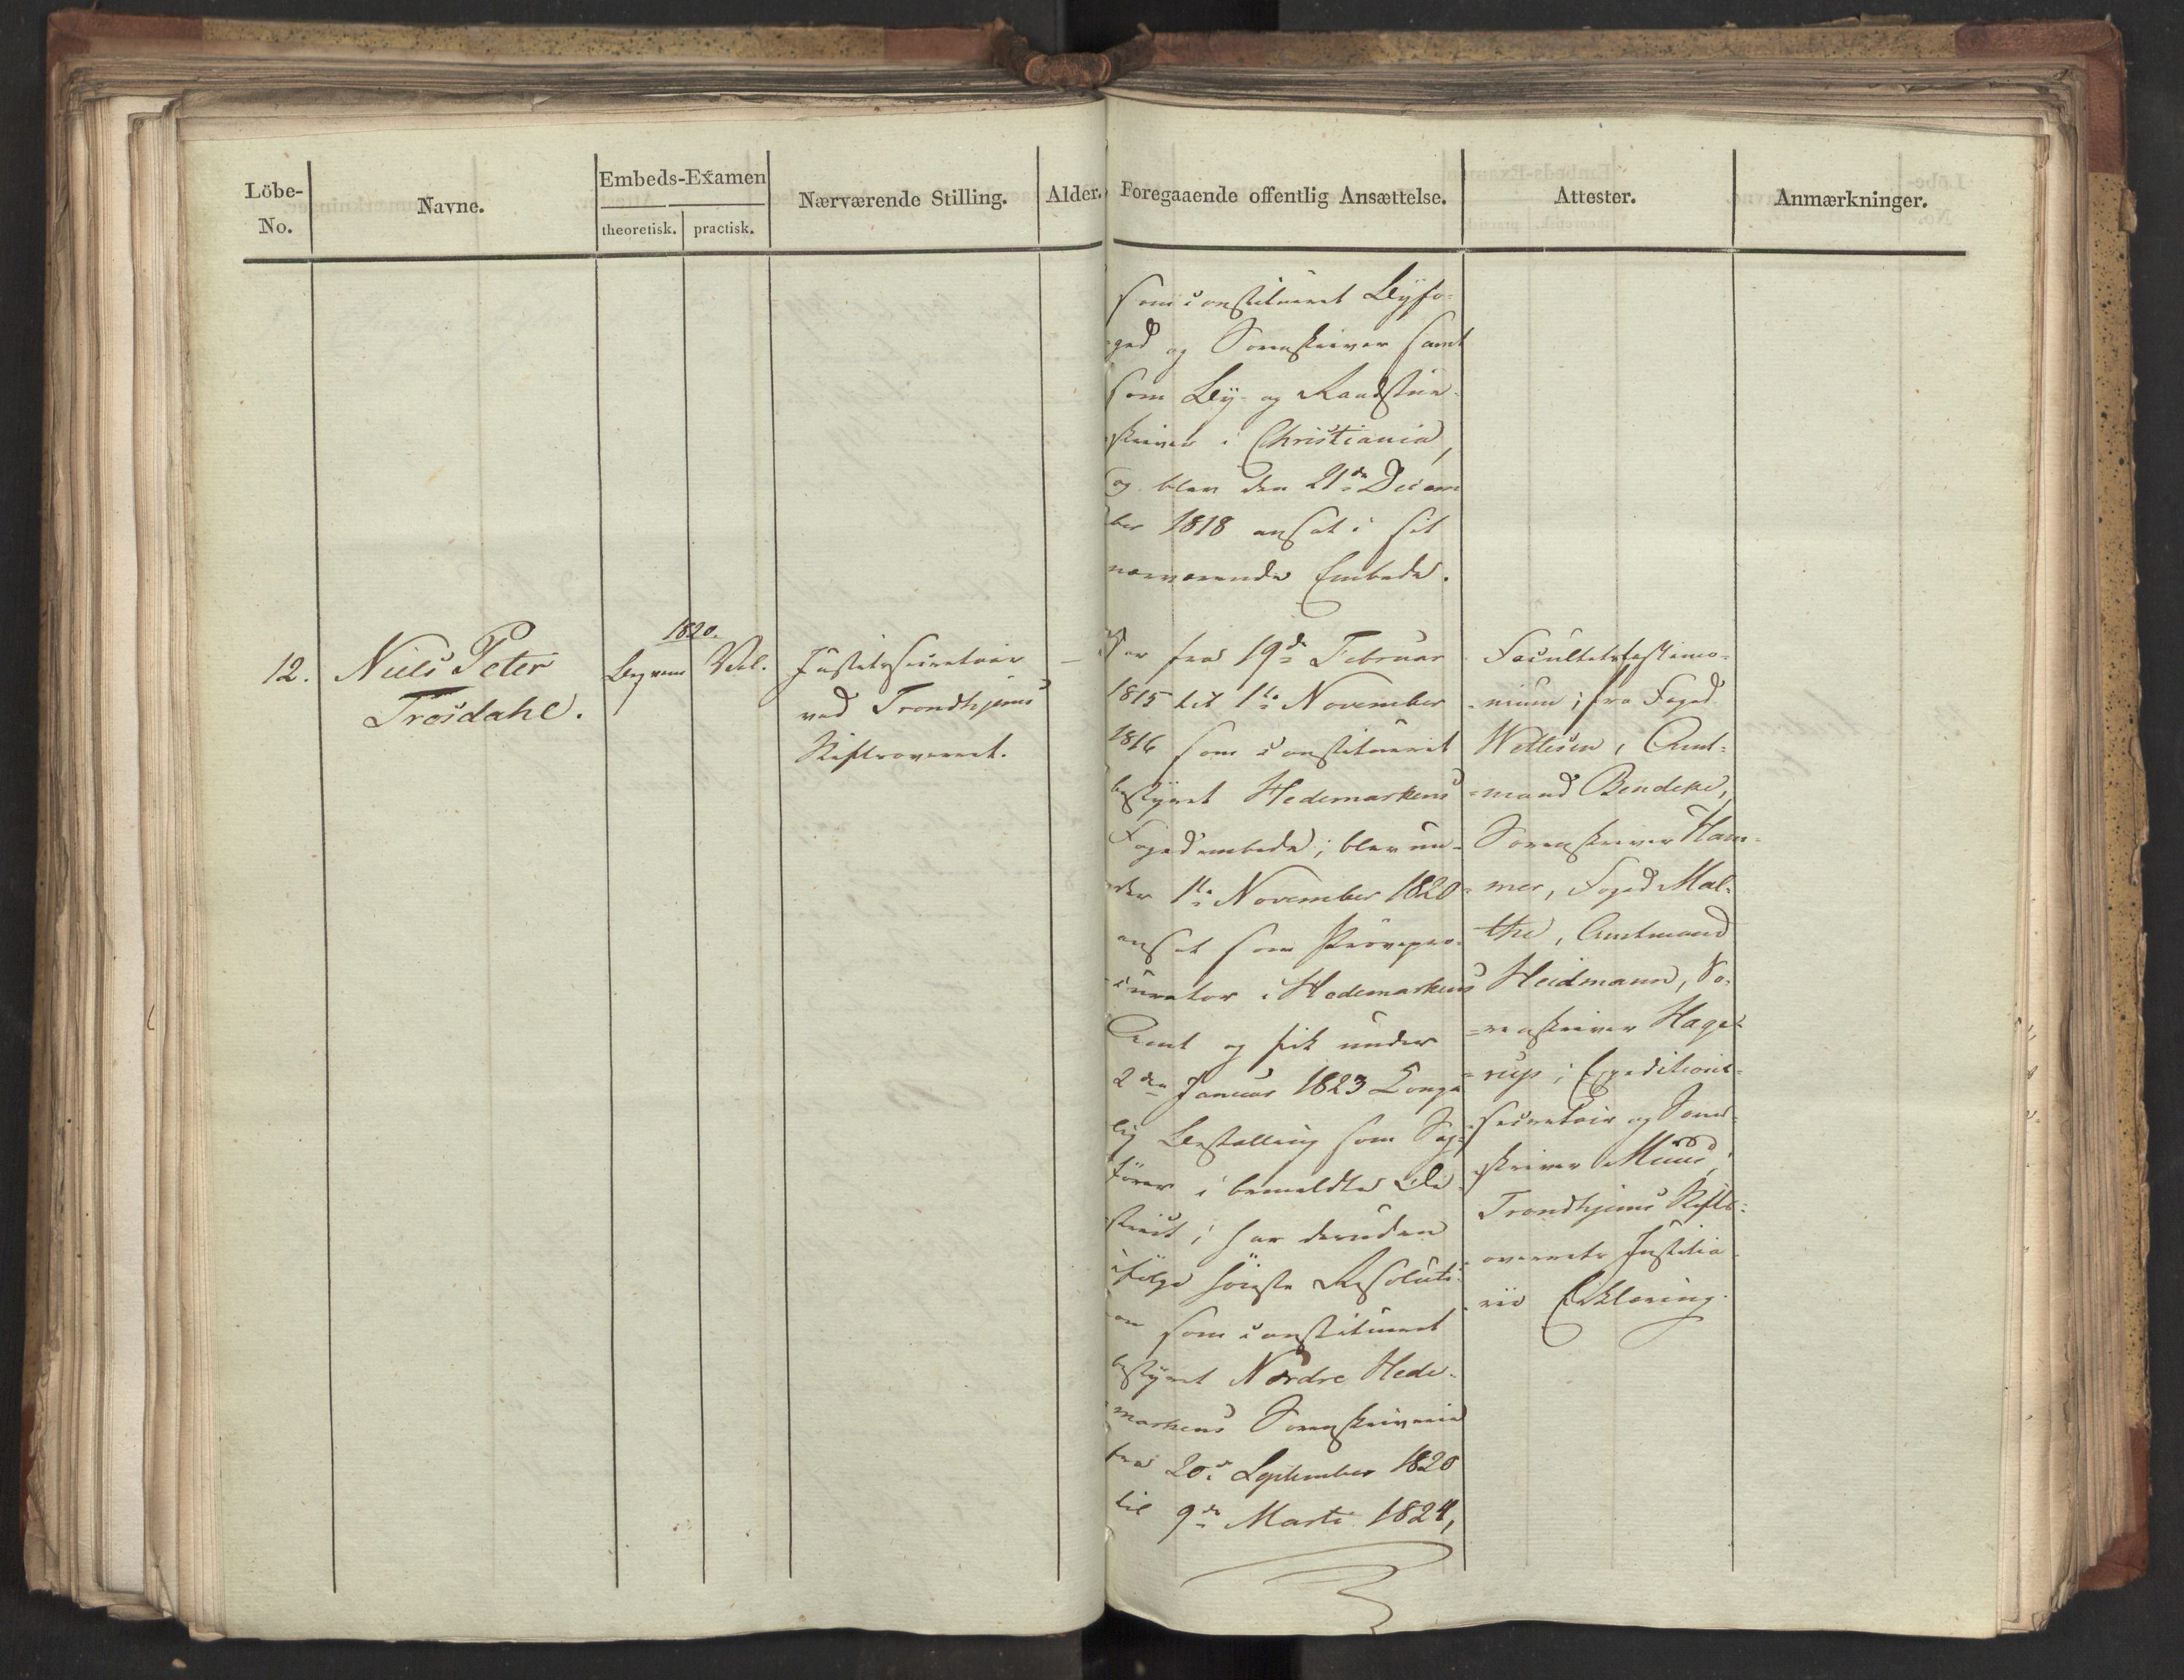 Löbe-
No.
Navne.
Embeds-Examen
theoretisk.
practisk.
Nærværende Stilling.
Alder.
Foregaaende offentlig Ansættelse.
Attester.
Anmærkninger.
som constitueret Byfo-
ged og Sorenskriver samt
som By- og Raadstue-
skriver i Christiania,
og blev den 21de Decem
ber 1818 ansat i sit
nærværende Embede.
12.
Niels Peter
Trosdahl.
1820.
Beqvem
Vel.
Justitssecretair
ved Trondhjems
Stiftsoverret.
–
Har fra 19de Februar
1815 til 1te November
1816 som constitueret
bestyret Hedemarkens
Fogedembede; blev un-
der 1te November 1820
ansat som Prövepro-
curator i Hedemarkens
Amt og fik under
2den Januar 1823 Konge
lig Bestalling som Sag-
förer i bemeldte Di-
strict; har desuden
ifölge höieste Resoluti-
on som constitueret
bestyret Nordre Hede-
markens Sorenskriverie
fra 20de September 1820
til 9de Marti 1824,
Facultetstestimo-
nium; fra Foged
Weltesen, Amt-
mand Bendeke,
Sorenskriver Ham-
mer, Foged Mal-
the, Amtmand
Heidmann, So-
renskriver Hage-
rup; Expeditions-
secretair og Soren-
skriver Muus;
Trondhjems Stifts-
overrets Justitia-
rii Erklæring.